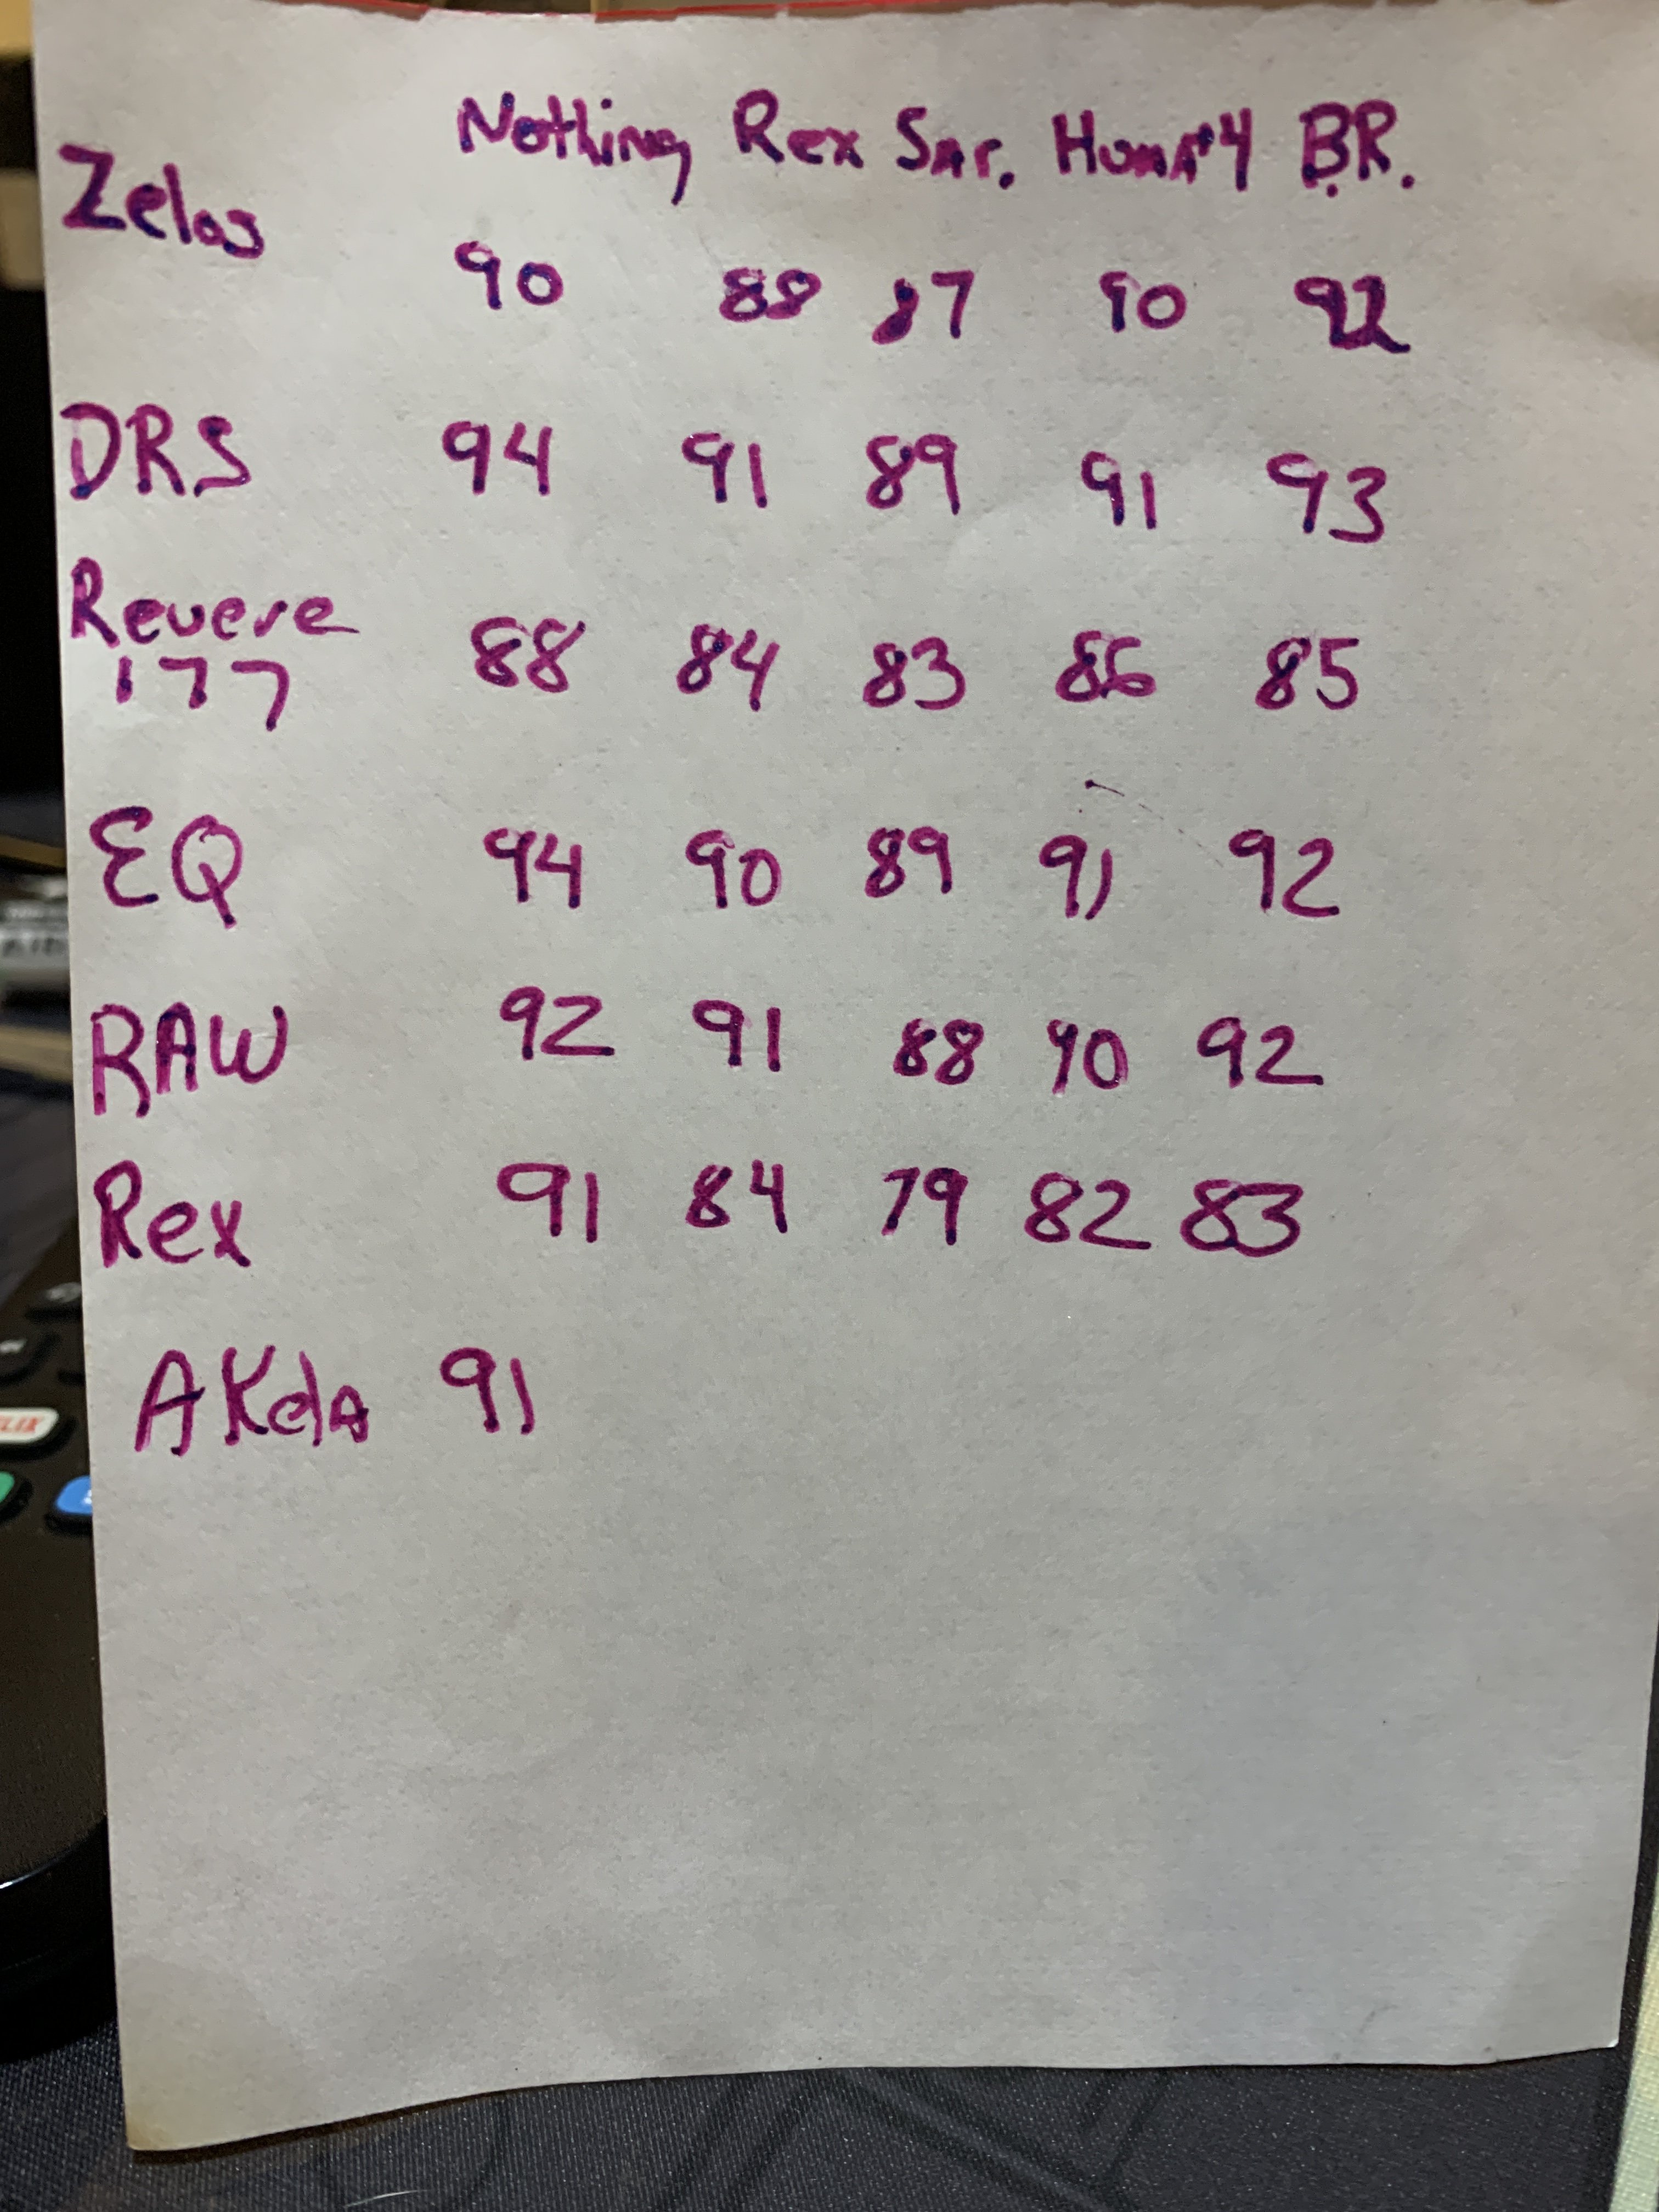 Nothing Rex Sar. Huma#4 B.R.
Zelos 90 88 87 90 92
DRS 94 91 89 91 93
Revere 88 84 83 86 85
177
EQ 94 90 89 91 92
RAW 92 91 88 90 92
Rex 91 84 79 82 83
AKela 91